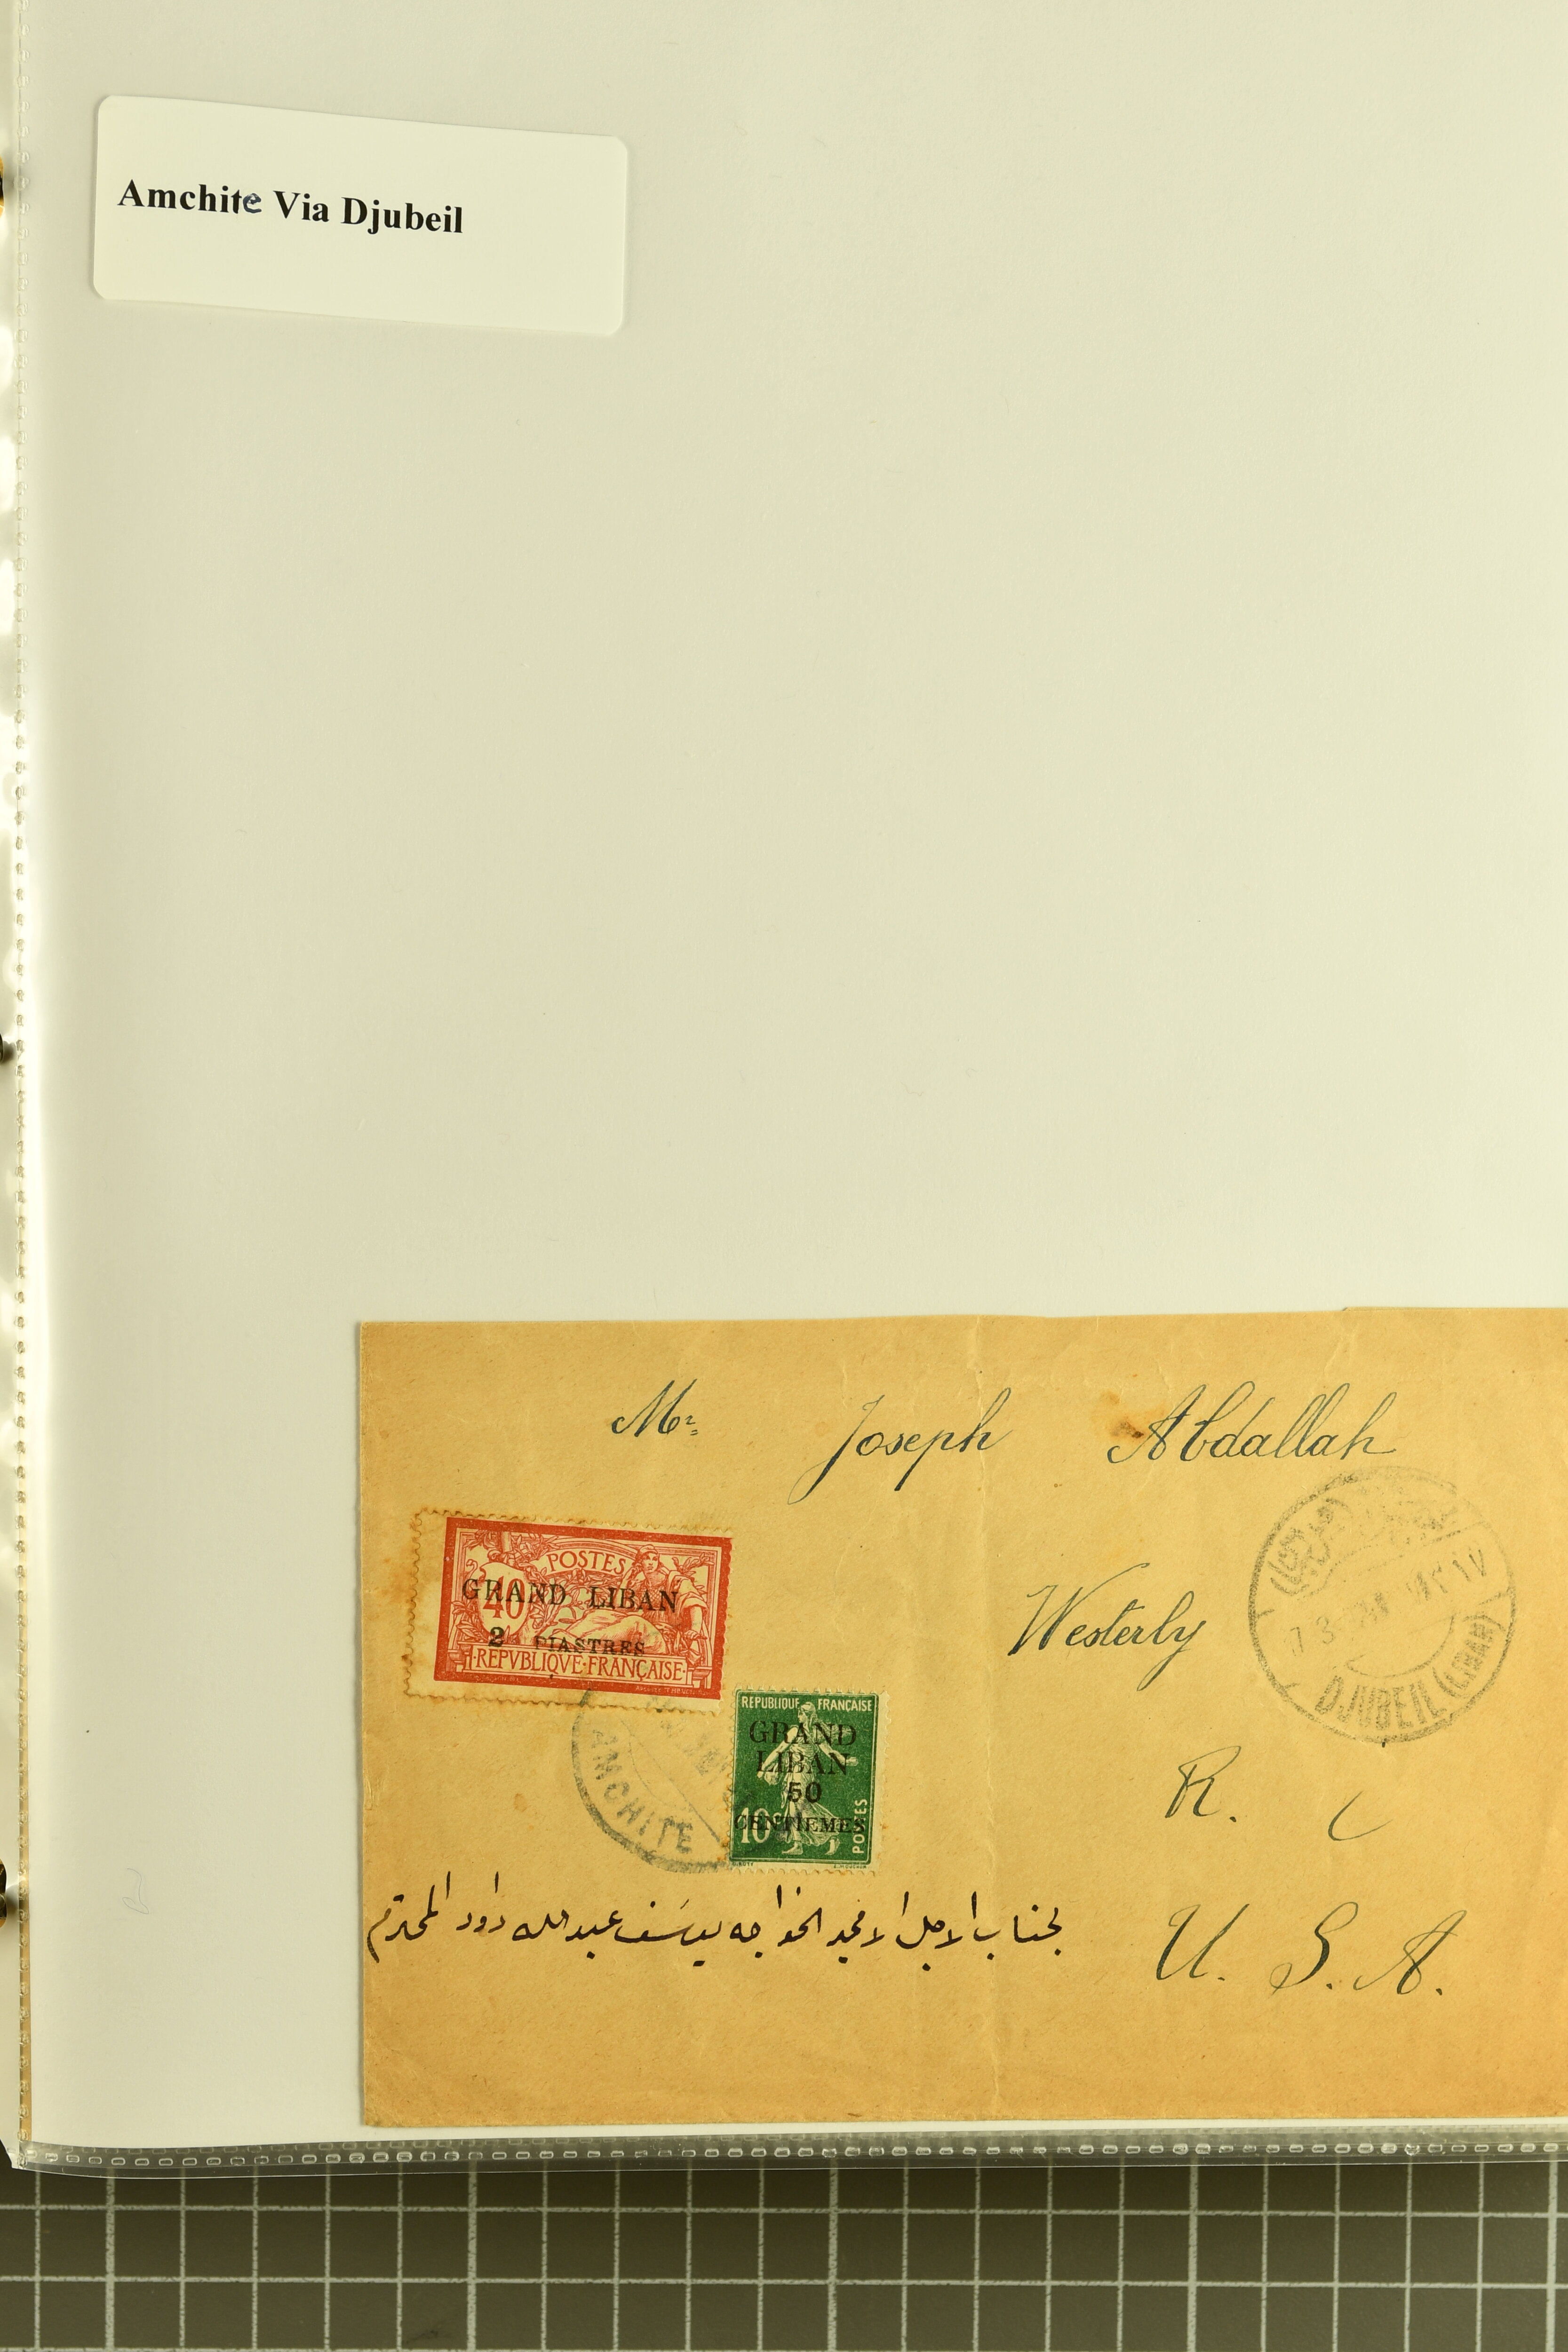 Amchite Via Djubeil
Mr Joseph Abdallah
POSTES
40
GRAND LIBAN
2 PIASTRES
REPVBLIQVE FRANÇAISE
Westerly
DJUBEIL (LIBAN)
REPUBLIQUE FRANÇAISE
GRAND
LIBAN
50
CENTIEMES
10c
POSTES
AMCHITE
R.
لجناب الاجل الامجد الخواجه يوسف عبدالله داود المحترم
U. S. A.